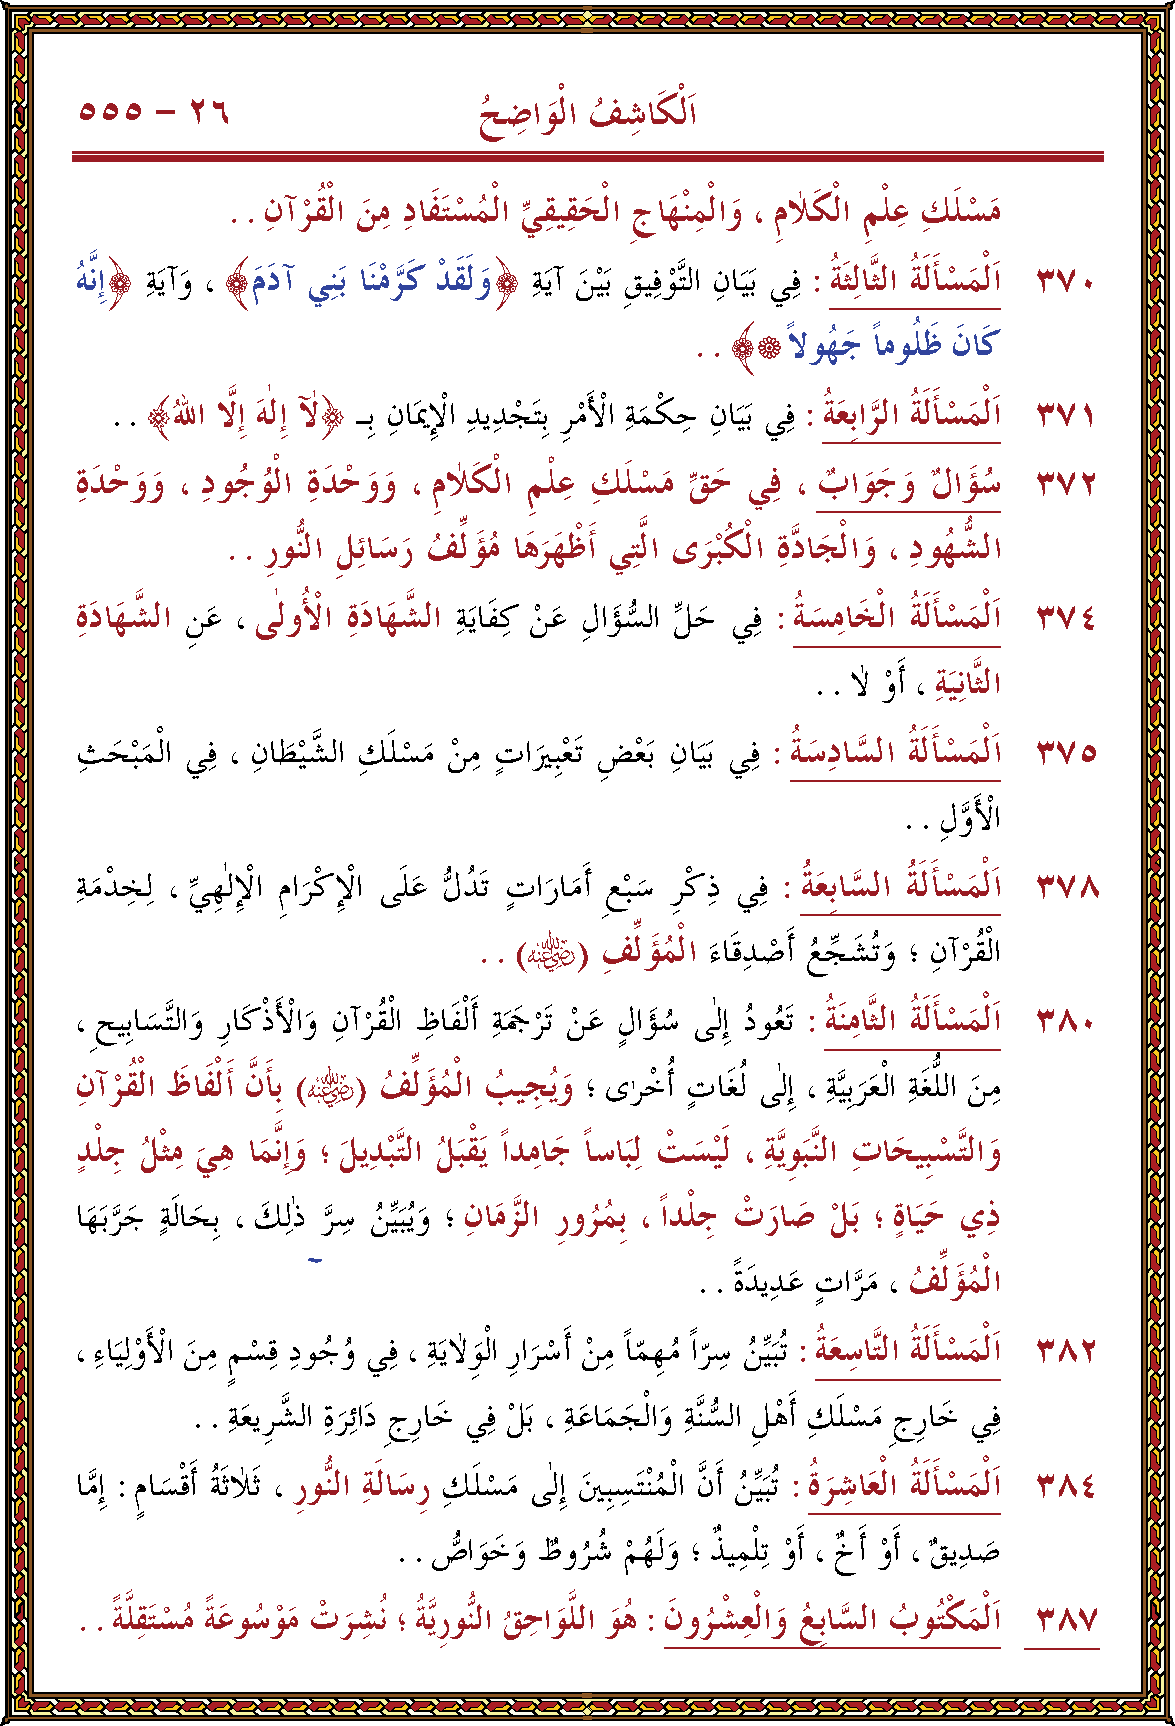 اَلْكَاشِفُ الْوَاضِحُ ٢٦ - ٥٥٥
مَسْلَكِ عِلْمِ الْكَلَامِ ، وَالْمِنْهَاجِ الْحَقِيقِيِّ الْمُسْتَفَادِ مِنَ الْقُرْآنِ . .
٣٧٠ اَلْمَسْأَلَةُ الثَّالِثَةُ : فِي بَيَانِ التَّوْفِيقِ بَيْنَ آيَةِ ﴿وَلَقَدْ كَرَّمْنَا بَنِي آدَمَ﴾ ، وَآيَةِ ﴿إِنَّهُ
كَانَ ظَلُوماً جَهُولاً ۞﴾ . .
٣٧١ اَلْمَسْأَلَةُ الرَّابِعَةُ : فِي بَيَانِ حِكْمَةِ الْأَمْرِ بِتَجْدِيدِ الْإِيمَانِ بِـ ﴿لَآ إِلٰهَ إِلَّا اللهُ﴾ . .
٣٧٢ سُؤَالٌ وَجَوَابٌ ، فِي حَقِّ مَسْلَكِ عِلْمِ الْكَلَامِ ، وَوَحْدَةِ الْوُجُودِ ، وَوَحْدَةِ
الشُّهُودِ ، وَالْجَادَّةِ الْكُبْرَى الَّتِي أَظْهَرَهَا مُؤَلِّفُ رَسَائِلِ النُّورِ . .
٣٧٤ اَلْمَسْأَلَةُ الْخَامِسَةُ : فِي حَلِّ السُّؤَالِ عَنْ كِفَايَةِ الشَّهَادَةِ الْأُولٰى ، عَنِ الشَّهَادَةِ
الثَّانِيَةِ ، أَوْ لَا . .
٣٧٥ اَلْمَسْأَلَةُ السَّادِسَةُ : فِي بَيَانِ بَعْضِ تَعْبِيرَاتٍ مِنْ مَسْلَكِ الشَّيْطَانِ ، فِي الْمَبْحَثِ
الْأَوَّلِ . .
٣٧٨ اَلْمَسْأَلَةُ السَّابِعَةُ : فِي ذِكْرِ سَبْعِ أَمَارَاتٍ تَدُلُّ عَلَى الْإِكْرَامِ الْإِلٰهِيِّ ، لِخِدْمَةِ
الْقُرْآنِ ؛ وَتُشَجِّعُ أَصْدِقَاءَ الْمُؤَلِّفِ (رَضِيَ اللهُ عَنْهُ) . .
٣٨٠ اَلْمَسْأَلَةُ الثَّامِنَةُ : تَعُودُ إِلٰى سُؤَالٍ عَنْ تَرْجَمَةِ أَلْفَاظِ الْقُرْآنِ وَالْأَذْكَارِ وَالتَّسَابِيحِ ،
مِنَ اللُّغَةِ الْعَرَبِيَّةِ ، إِلٰى لُغَاتٍ أُخْرٰى ؛ وَيُجِيبُ الْمُؤَلِّفُ (رَضِيَ اللهُ عَنْهُ) بِأَنَّ أَلْفَاظَ الْقُرْآنِ
وَالتَّسْبِيحَاتِ النَّبَوِيَّةِ ، لَيْسَتْ لِبَاساً جَامِداً يَقْبَلُ التَّبْدِيلَ ؛ وَإِنَّمَا هِيَ مِثْلُ جِلْدٍ
ذِي حَيَاةٍ ؛ بَلْ صَارَتْ جِلْداً ، بِمُرُورِ الزَّمَانِ ؛ وَيُبَيِّنُ سِرَّ ذٰلِكَ ، بِحَالَةٍ جَرَّبَهَا
الْمُؤَلِّفُ ، مَرَّاتٍ عَدِيدَةً . .
٣٨٢ اَلْمَسْأَلَةُ التَّاسِعَةُ : تُبَيِّنُ سِرّاً مُهِمّاً مِنْ أَسْرَارِ الْوَلَايَةِ ، فِي وُجُودِ قِسْمٍ مِنَ الْأَوْلِيَاءِ ،
فِي خَارِجِ مَسْلَكِ أَهْلِ السُّنَّةِ وَالْجَمَاعَةِ ، بَلْ فِي خَارِجِ دَائِرَةِ الشَّرِيعَةِ . .
٣٨٤ اَلْمَسْأَلَةُ الْعَاشِرَةُ : تُبَيِّنُ أَنَّ الْمُنْتَسِبِينَ إِلٰى مَسْلَكِ رِسَالَةِ النُّورِ ، ثَلَاثَةُ أَقْسَامٍ : إِمَّا
صَدِيقٌ ، أَوْ أَخٌ ، أَوْ تِلْمِيذٌ ؛ وَلَهُمْ شُرُوطٌ وَخَوَاصٌّ . .
٣٨٧ اَلْمَكْتُوبُ السَّابِعُ وَالْعِشْرُونَ : هُوَ اللَّوَاحِقُ النُّورِيَّةُ ؛ نُشِرَتْ مَوْسُوعَةً مُسْتَقِلَّةً . .